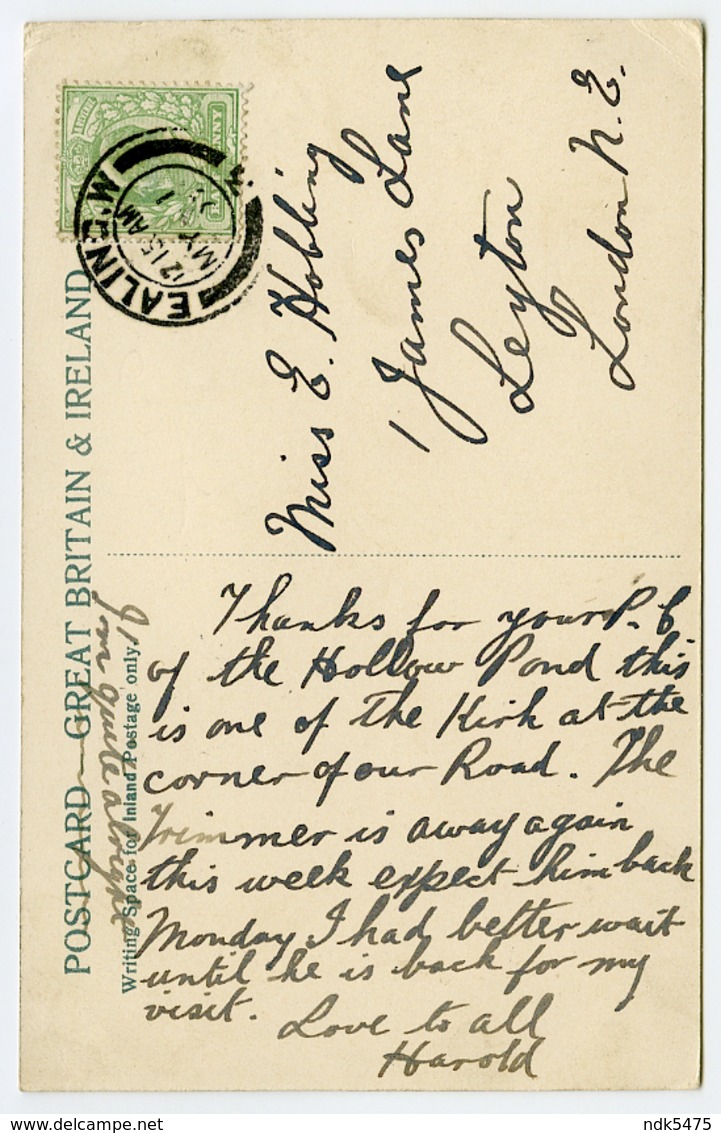 POSTCARD — GREAT BRITAIN & IRELAND
Writing Space for Inland Postage only.
EALING. W
12 15 AM
MY 1
Miss E. Hobling
1 James Lane
Leyton
London N.E.
Thanks for your P.C
of the Hollow Pond this
is one of the Kirk at the
corner of our Road. The
Trimmer is away again
this week expect him back
Monday I had better wait
until he is back for my
visit.
Love to all
Harold
quite alright
ndk5475